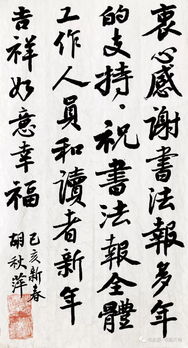 衷心感謝書法報多年
的支持，祝書法報全體
工作人員和讀者新年
吉祥如意幸福
己亥新春
胡秋萍